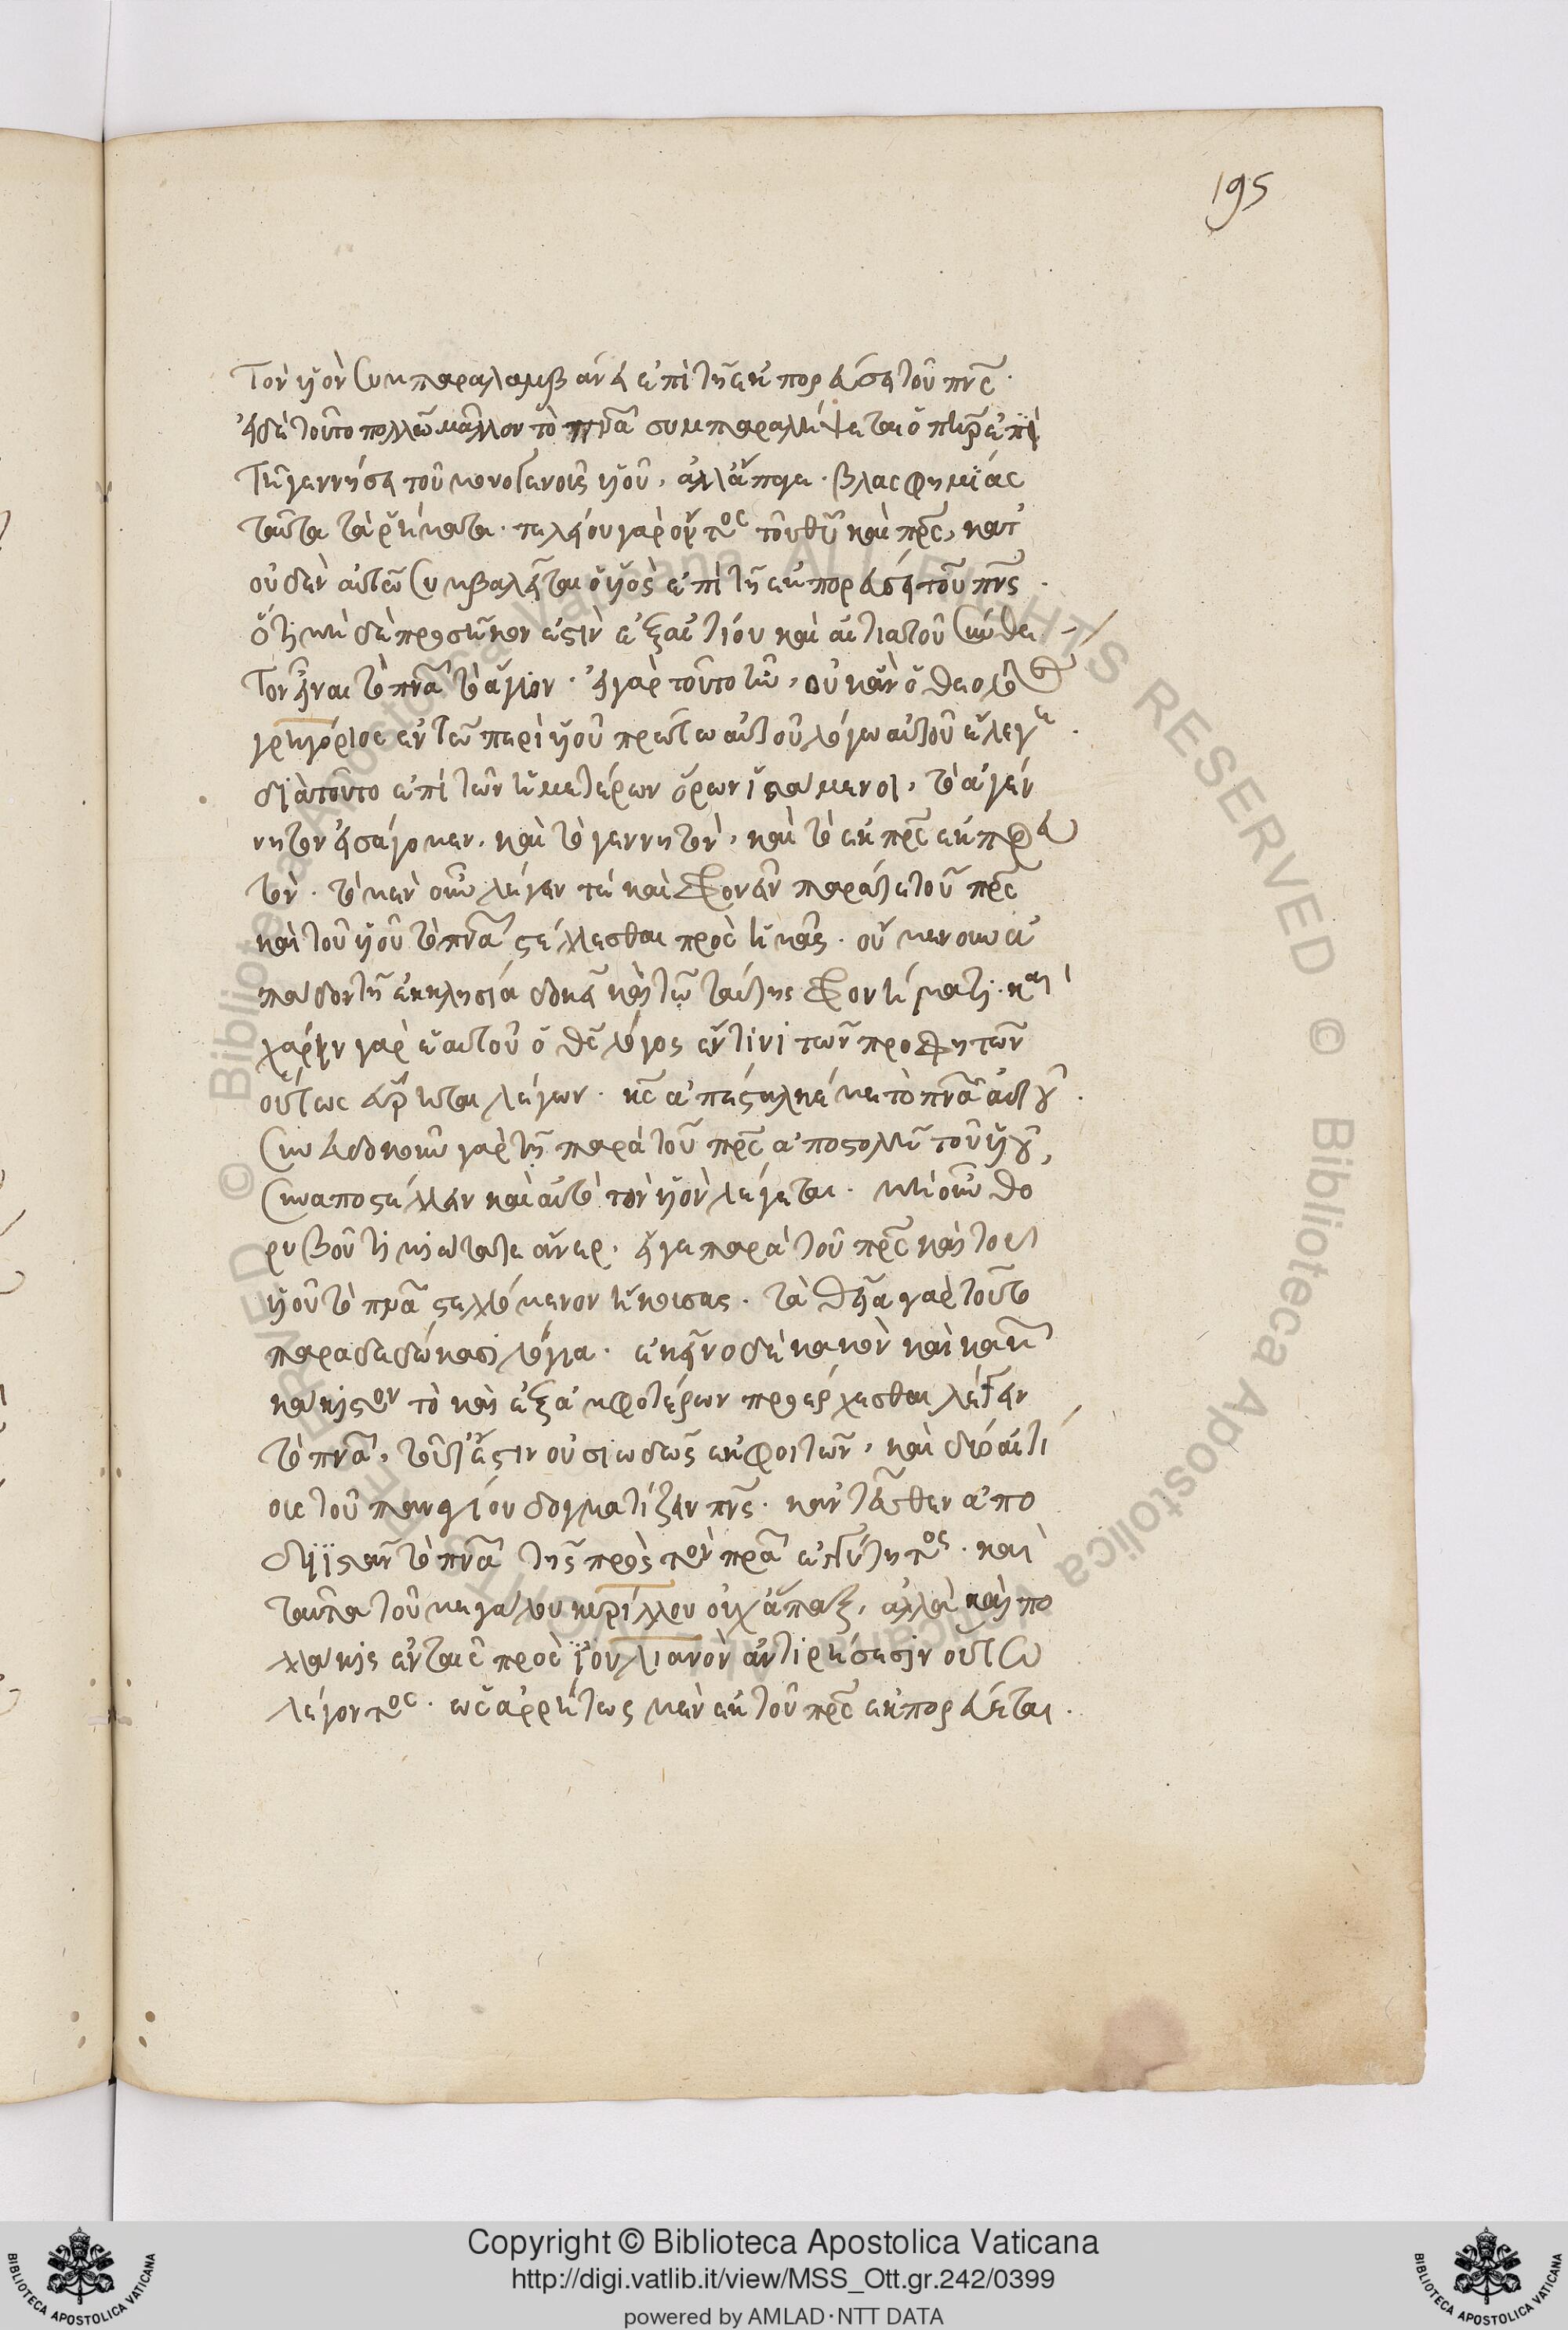 195
τὸν ὑϊὸν συμπαραλαμβάνει ἐπὶ τῇ ἐκπορεύσει τοῦ πρ̅ς̅.
εἰ δὲ τοῦτο πολλῶ μᾶλλον τὸ πν̅α̅ συμπαραλήψεται ὁ πη̅ρ̅ ἐπὶ
τῇ γεννήσει τοῦ μονογενοῦς ὑϊοῦ, ἀλλ' ἄπαγε. βλασφημίας
ταῦτα τὰ ῥήματα. τελείου γὰρ ὄντος τοῦ θῦ καὶ πρ̅ς̅, κατ'
οὐδὲν αὐτῶ συμβαλεῖται ὁ ὑϊὸς ἐπὶ τῇ ἐκπορεύσει τοῦ πν̅ς̅.
ὅτι μὴ δὲ προσῆκον ἐστὶν ἐξ αἰτίου καὶ αἰτιατοῦ σύνθε
τον εἶναι τὸ πν̅α̅ τὸ ἅγιον. εἰ γὰρ τοῦτο ἦν, οὐκ ἂν ὁ θεολό
γρηγόριος ἐν τῶ περὶ ὑϊοῦ πρώτω αὐτοῦ λόγω αὐτοῦ ἔλεγε.
διὰ τοῦτο ἐπὶ τῶν ἡμετέρων ὅρων ἱστάμενοι, τὸ ἀγέν
νητον εἰσάγομεν, καὶ τὸ γεννητὸν, καὶ τὸ ἐκ πρ̅ς̅ ἐκπορευ
τὸν. τὸ μὲν οὖν λέγειν τὲ καὶ φρονεῖν παρά τε τοῦ πρ̅ς̅
καὶ τοῦ ὑϊοῦ τὸ πν̅α̅ στέλλεσθαι πρὸς ἡμᾶς. οὔμενουν ἀ
πᾶδον τῇ ἐκκλησία δοκεῖ καὶ τῶ ταύτης φρονήματι. καὶ
χάριν γὰρ ἑαυτοῦ ὁ θς̅ λόγος ἔν τινι τῶν προφητῶν
οὕτως εἴρηται λέγων. κς̅ ἀπέσταλκέ με τὸ πν̅α̅ αὐτοῦ.
συνευδοκοῦν γὰρ τῇ παρὰ τοῦ πρ̅ς̅ ἀποστολῇ τοῦ ὑϊοῦ,
συναποστέλλειν καὶ αὐτὸ τὸν ὑϊὸν λέγεται. μὴ οὖν θο
ρυβοῦ τιμιώτατε ἄνερ. εἴγε παρὰ τοῦ πρ̅ς̅ καὶ τοῦ
ὑϊοῦ τὸ πν̅α̅ στελλόμενον ἤκουσας. τὰ θεῖα γὰρ τοῦτο
παραδεδώκασι λόγια. ἐκεῖνο δὲ κακὸν καὶ κακῶν
κάκιστον τὸ καὶ ἐξ ἀμφοτέρων προέρχεσθαι λέγειν
τὸ πν̅α̅, τουτέστιν οὐσιωδῶς ἐκφοιτῶν, καὶ δύο αἰτί
ους τοῦ παναγίου δογματίζειν πν̅ς̅. κἀντεῦθεν ἀπο
διϊστᾶν τὸ πν̅α̅ τῆς πρὸς τὸν πρ̅α̅ ἑνότητος. καὶ
ταῦτα τοῦ μεγάλου κυρίλλου οὐχ ἅπαξ, ἀλλὰ καὶ πο
λλάκις ἐν ταῖς πρὸς ἰουλιανὸν ἀντιρήσεσιν οὕτω
λέγοντος. ὡς ἀρρήτως μὲν ἐκ τοῦ πρ̅ς̅ ἐκπορεύεται.
Copyright © Biblioteca Apostolica Vaticana
http://digi.vatlib.it/view/MSS_Ott.gr.242/0399
powered by AMLAD·NTT DATA
BIBLIOTECA APOSTOLICA VATICANA
BIBLIOTECA APOSTOLICA VATICANA